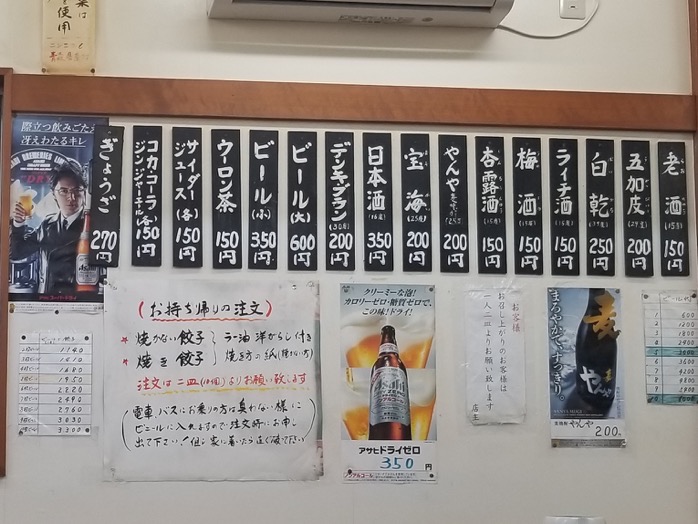 菜は
を使用
際立つ飲みごたえ
冴えわたるキレ
DRY
ぎょうざ 270円
コカ・コーラ ジンジャーエール (各) 150円
サイダー ジュース (各) 150円
ウーロン茶 150円
ビール (小) 350円
ビール (大) 600円
デンキブラン (30度) 200円
日本酒 (16度) 350円
宝海 (25度) 200円
やんや 200円
杏露酒 150円
梅酒 150円
ライチ酒 150円
白乾 250円
五加皮 200円
老酒 150円
(お持ち帰りの注文)
焼かない餃子
焼き餃子
ラー油 洋がらし付き
焼き方の紙
注文は二皿(10個)よりお願い致します
電車、バスにお乗りの方は臭わない様に
ビニールに入れますので注文時にお申し
出て下さい!但し家に着いたら直ぐ破て下さい
クリーミーな泡!
カロリーゼロ・糖質ゼロで、
この味!ドライ!
Asahi
アサヒドライゼロ
350円
お客様
お召し上がりのお客様は
一人二皿よりお願い致します
店主
まろやかで、すっきり。
麦
やんや
200円
1140
1680
1950
2220
2490
2760
3030
3300
1 600
2 1200
3 1800
4 2400
5 3000
6 3600
7 4200